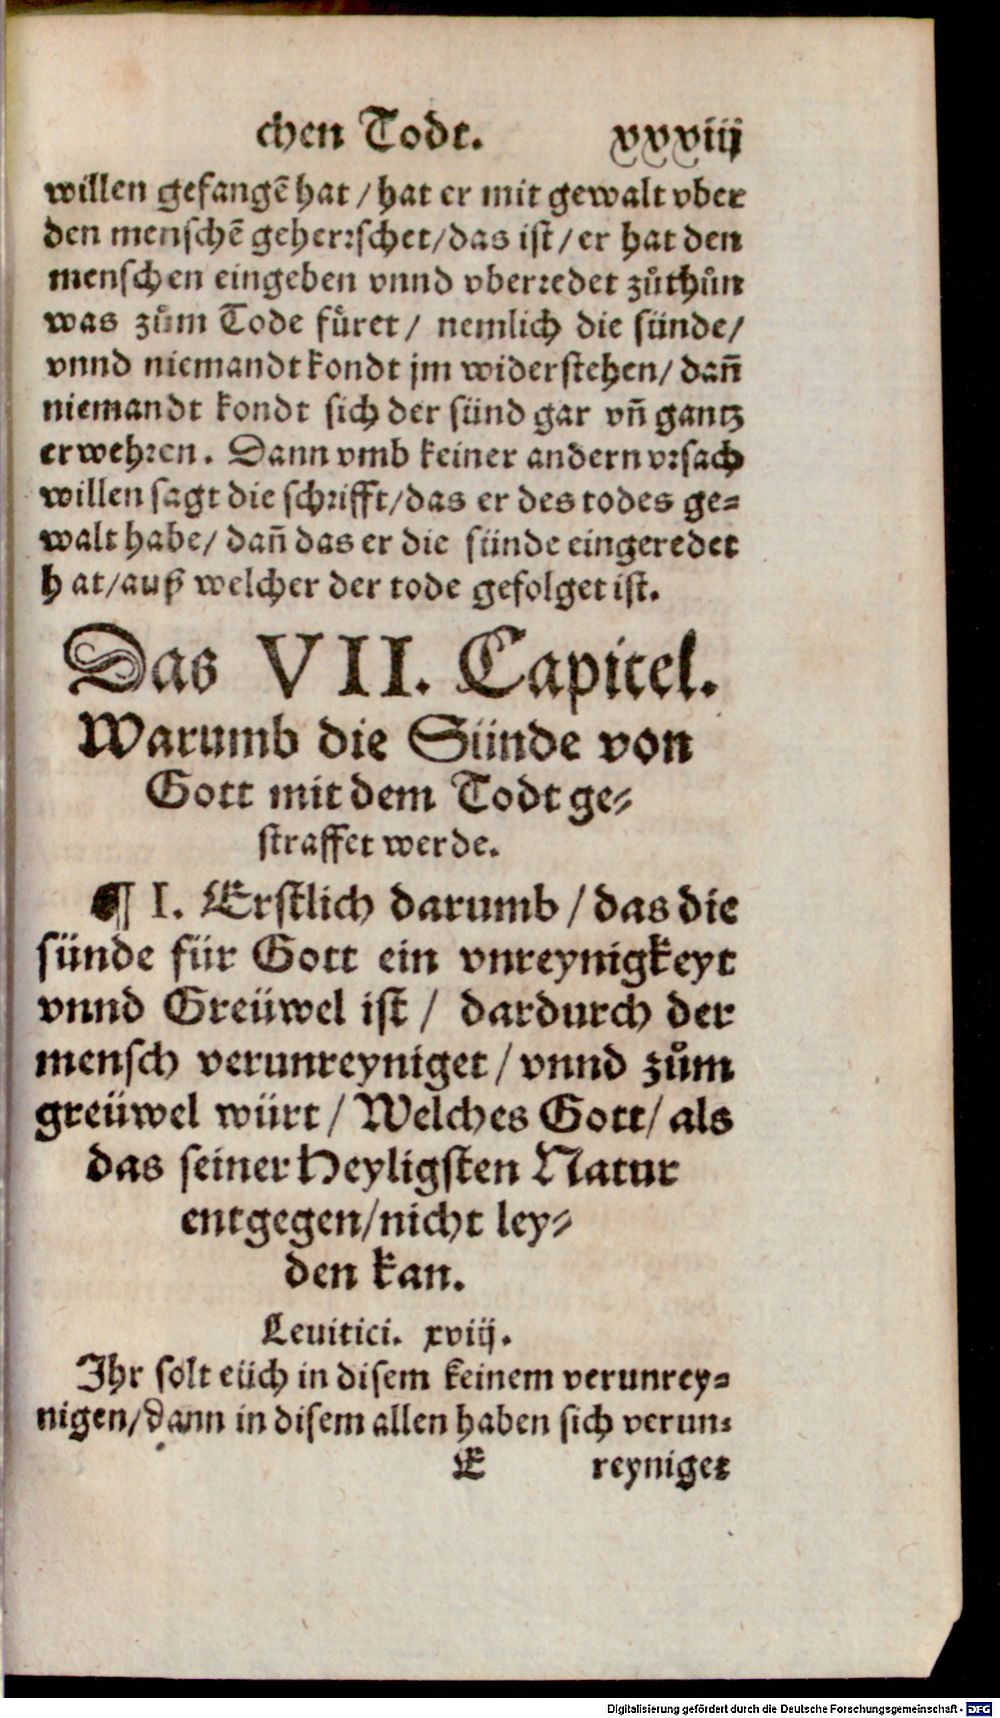 chen Todt. xxxiij
willen gefangē hat / hat er mit gewalt vber
den menschē geherrschet/das ist/er hat den
menschen eingeben vnnd vberredet zůthůn
was zům Tode füret/ nemlich die sünde/
vnnd niemandt kondt jm widerstehen/ dañ
niemandt kondt sich der sünd gar vñ gantz
erwehren. Dann vmb keiner andern vrsach
willen sagt die schrifft/das er des todes ge=
walt habe/ dañ das er die sünde eingeredet
hat/auß welcher der tode gefolget ist.
Das VII. Capitel.
Warumb die Sünde von
Gott mit dem Todt ge=
straffet werde.
¶ I. Erstlich darumb / das die
sünde für Gott ein vnreynigkeyt
vnnd Greüwel ist / dardurch der
mensch verunreyniget / vnnd zům
greüwel würt / Welches Gott/ als
das seiner Heyligsten Natur
entgegen/nicht ley=
den kan.
Leuitici. xviij.
Ihr solt eüch in disem keinem verunrey=
nigen/dann in disem allen haben sich verun=
E reyniget
Digitalisierung gefördert durch die Deutsche Forschungsgemeinschaft - DFG